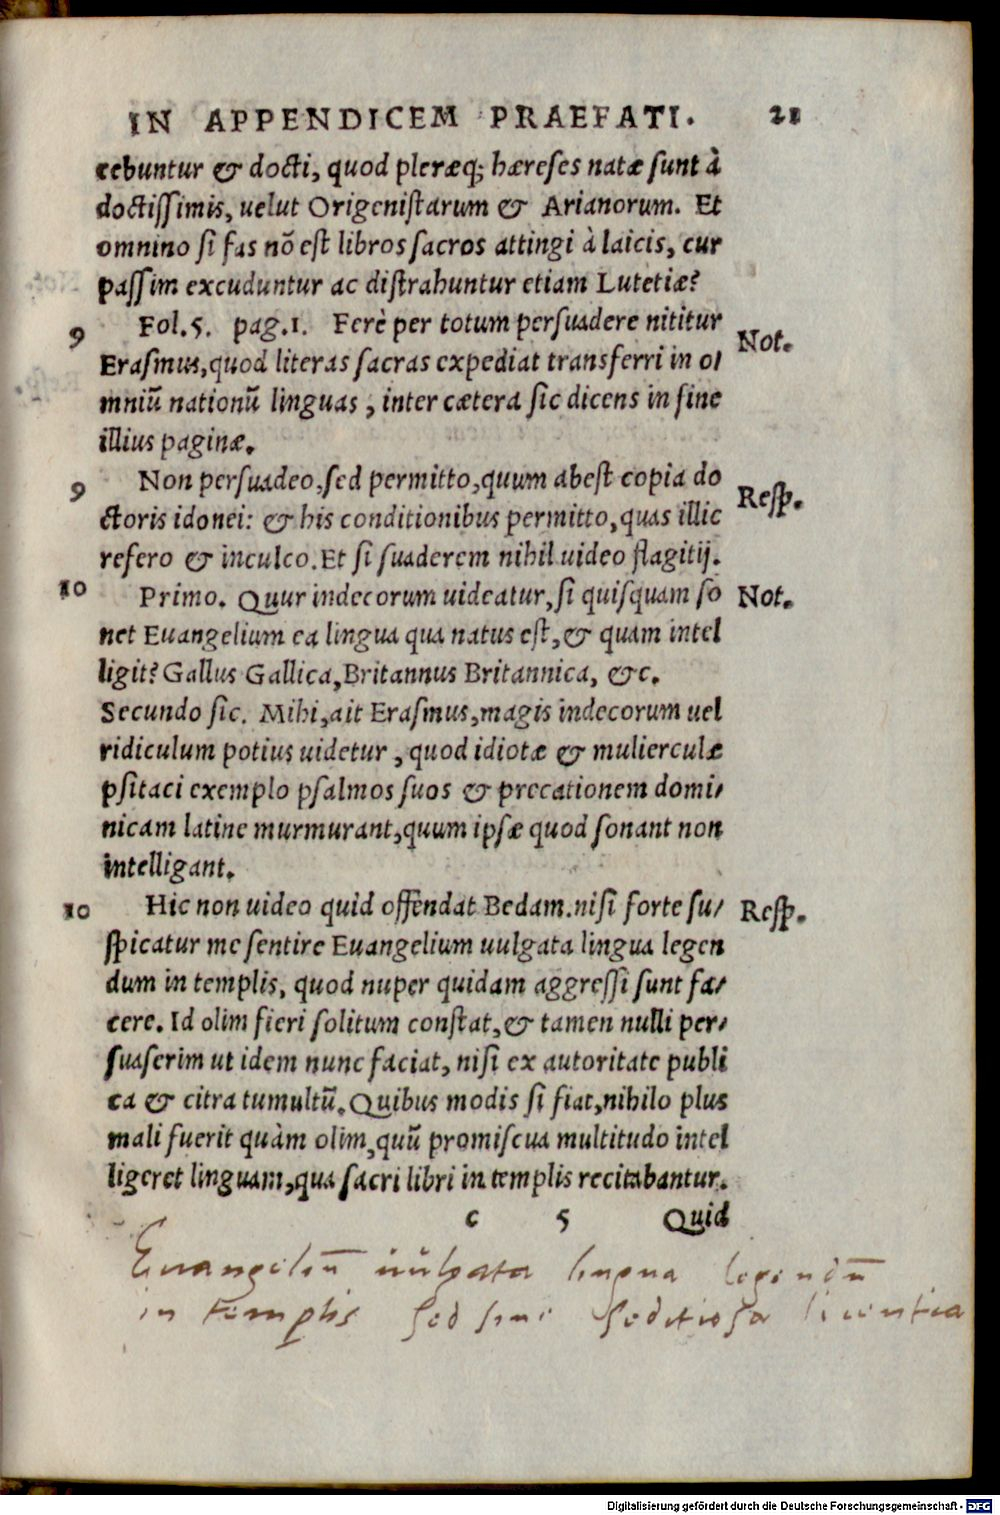 IN APPENDICEM PRAEFATI. 21
cebuntur & docti, quod pleræq; hæreses natæ sunt à
doctissimis, uelut Origenistarum & Arianorum. Et
omnino si fas nõ est libros sacros attingi à laicis, cur
passim excuduntur ac distrahuntur etiam Lutetiæ?
9 Fol.5. pag.1. Ferè per totum persuadere nititur Not.
Erasmus, quod literas sacras expediat transferri in o-
mniũ nationũ linguas, inter cætera sic dicens in fine
illius paginæ.
9 Non persuadeo, sed permitto, quum abest copia do Resp.
ctoris idonei: & his conditionibus permitto, quas illic
refero & inculco. Et si suaderem nihil uideo flagitij.
10 Primo. Quur indecorum uideatur, si quisquam so Not.
net Euangelium ea lingua qua natus est, & quam intel
ligit? Gallus Gallica, Britannus Britannica, &c.
Secundo sic. Mihi, ait Erasmus, magis indecorum uel
ridiculum potius uidetur, quod idiotæ & mulierculæ
psitaci exemplo psalmos suos & precationem domi-
nicam latine murmurant, quum ipsæ quod sonant non
intelligant.
10 Hic non uideo quid offendat Bedam. nisi forte su- Resp.
spicatur me sentire Euangelium uulgata lingua legen
dum in templis, quod nuper quidam aggressi sunt fa-
cere. Id olim fieri solitum constat, & tamen nulli per-
suaserim ut idem nunc faciat, nisi ex autoritate publi
ca & citra tumultũ. Quibus modis si fiat, nihilo plus
mali fuerit quàm olim, quũ promiscua multitudo intel
ligeret linguam, qua sacri libri in templis recitabantur.
c 5 Quid
Euangeliũ uulgata lingua legendũ
in templis sed sine seditiosa licentia
Digitalisierung gefördert durch die Deutsche Forschungsgemeinschaft - DFG